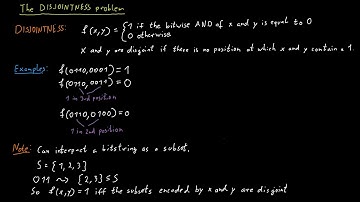 The DISJOINTNESS problem
DISJOINTNESS: f(x,y) = { 1 if the bitwise AND of x and y is equal to 0
0 otherwise
x and y are disjoint if there is no position at which x and y contain a 1.
Examples: f(0110,0001) = 1
f(0110,0011) = 0
1 in 3rd position
f(0110,0100) = 0
1 in 2nd position
Note: Can interpret a bitstring as a subset.
S = {1,2,3}
011 ⤳ {2,3} ⊆ S
So f(x,y) = 1 iff the subsets encoded by x and y are disjoint